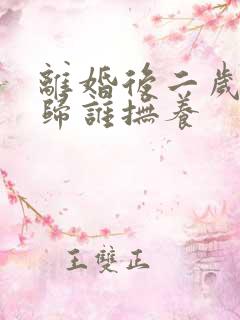 離婚後二歲
歸誰撫養
王雙正